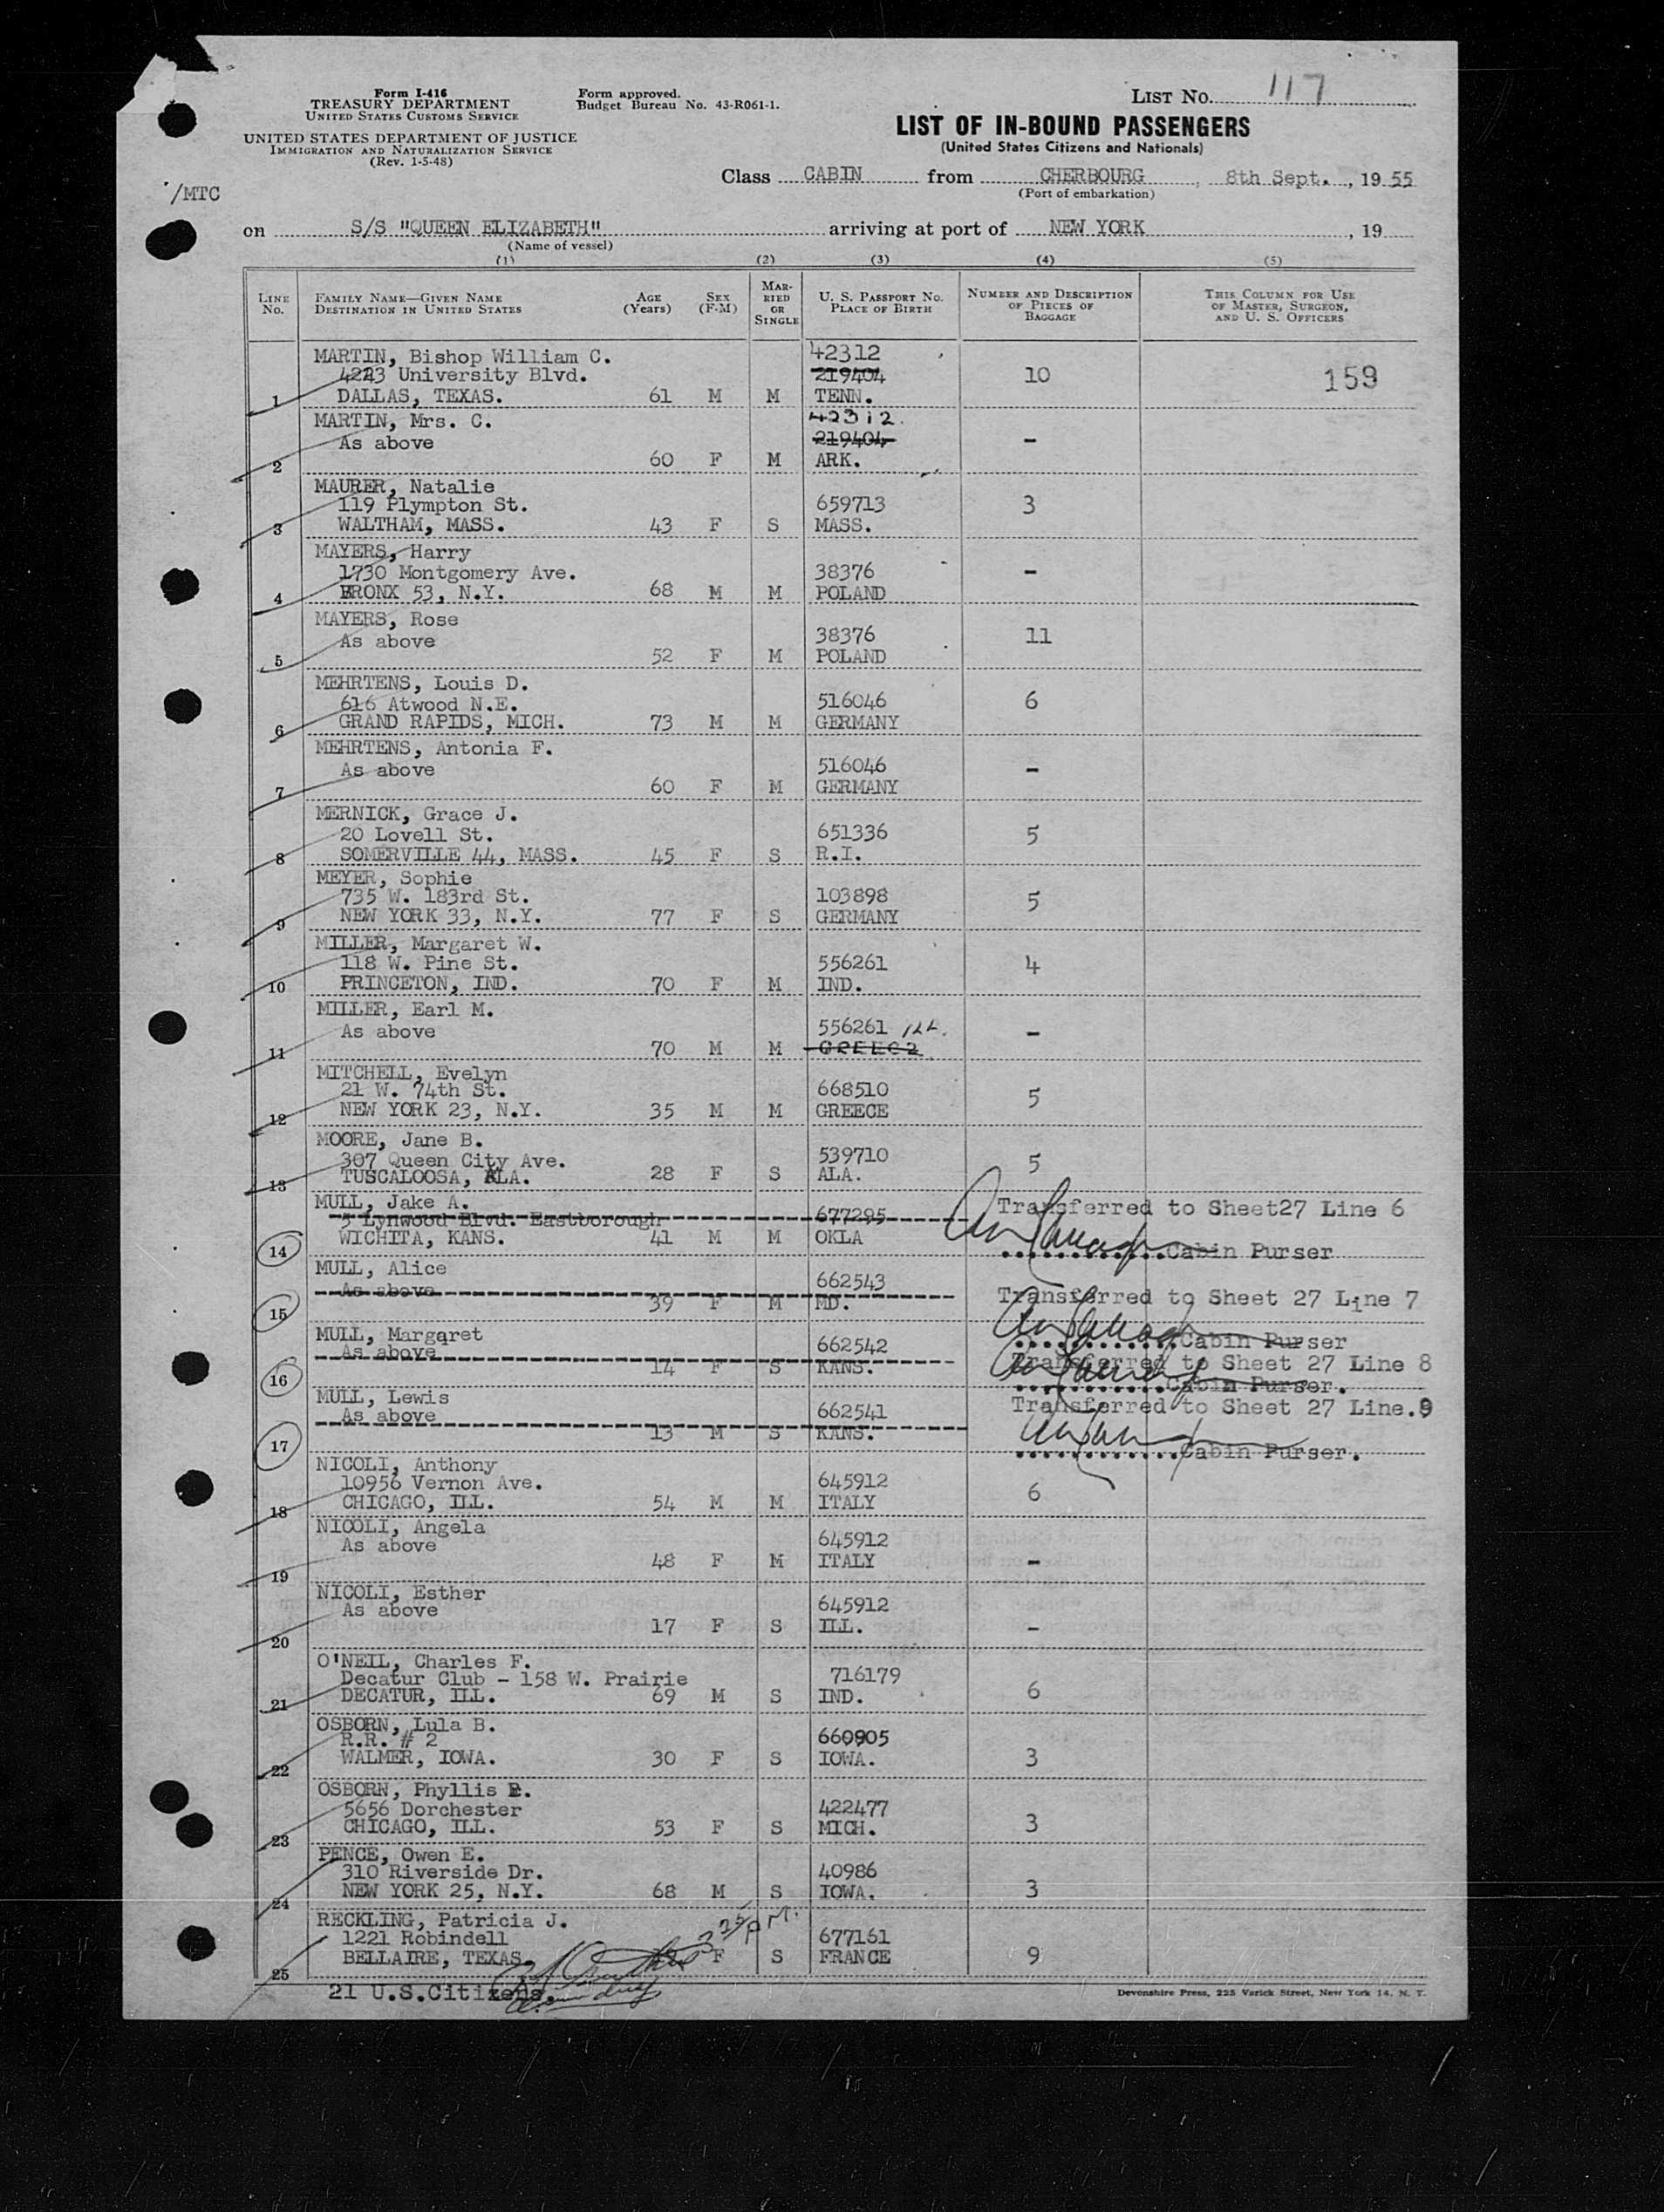 Form I-416
TREASURY DEPARTMENT
UNITED STATES CUSTOMS SERVICE
UNITED STATES DEPARTMENT OF JUSTICE
IMMIGRATION AND NATURALIZATION SERVICE
(Rev. 1-5-48)
Form approved.
Budget Bureau No. 43-R061-1.
LIST NO. 117
LIST OF IN-BOUND PASSENGERS
(United States Citizens and Nationals)
/MTC
Class CABIN from CHERBOURG, 8th Sept., 1955
(Port of embarkation)
on S/S "QUEEN ELIZABETH" arriving at port of NEW YORK, 19
(Name of vessel)
(1) (2) (3) (4) (5)
LINE NO. FAMILY NAME—GIVEN NAME DESTINATION IN UNITED STATES AGE (Years) SEX (F-M) MARRIED OR SINGLE U. S. PASSPORT NO. PLACE OF BIRTH NUMBER AND DESCRIPTION OF PIECES OF BAGGAGE THIS COLUMN FOR USE OF MASTER, SURGEON, AND U. S. OFFICERS
MARTIN, Bishop William C. 42312
4223 University Blvd. 219404 10 159
1 DALLAS, TEXAS. 61 M M TENN.
MARTIN, Mrs. C. 42312
As above 219404 -
2 60 F M ARK.
MAURER, Natalie
119 Plympton St. 659713 3
3 WALTHAM, MASS. 43 F S MASS.
MAYERS, Harry
1730 Montgomery Ave. 38376 -
4 BRONX 53, N.Y. 68 M M POLAND
MAYERS, Rose
As above 38376 11
5 52 F M POLAND
MEHRTENS, Louis D.
616 Atwood N.E. 516046 6
6 GRAND RAPIDS, MICH. 73 M M GERMANY
MEHRTENS, Antonia F.
As above 516046 -
7 60 F M GERMANY
MERNICK, Grace J.
20 Lovell St. 651336 5
8 SOMERVILLE 44, MASS. 45 F S R.I.
MEYER, Sophie
735 W. 183rd St. 103898 5
9 NEW YORK 33, N.Y. 77 F S GERMANY
MILLER, Margaret W.
118 W. Pine St. 556261 4
10 PRINCETON, IND. 70 F M IND.
MILLER, Earl M.
As above 556261 ILL. -
11 70 M M GREECE
MITCHELL, Evelyn
21 W. 74th St. 668510 5
12 NEW YORK 23, N.Y. 35 M M GREECE
MOORE, Jane B.
307 Queen City Ave. 539710 5
13 TUSCALOOSA, ALA. 28 F S ALA.
MULL, Jake A. Transferred to Sheet27 Line 6
5 Lynwood Blvd. Eastborough 677295
14 WICHITA, KANS. 41 M M OKLA Cabin Purser
MULL, Alice
As above 662543
15 39 F M MD. Transferred to Sheet 27 Line 7
MULL, Margaret 662542 Cabin Purser
As above Transferred to Sheet 27 Line 8
16 14 F S KANS. Cabin Purser.
MULL, Lewis Transferred to Sheet 27 Line.9
As above 662541
17 13 M S KANS. Cabin Purser.
NICOLI, Anthony
10956 Vernon Ave. 645912 6
18 CHICAGO, ILL. 54 M M ITALY
NICOLI, Angela
As above 645912
19 48 F M ITALY -
NICOLI, Esther
As above 645912
20 17 F S ILL. -
O'NEIL, Charles F.
Decatur Club - 158 W. Prairie 716179
21 DECATUR, ILL. 69 M S IND. 6
OSBORN, Lula B.
R.R. # 2 660905
22 WALMER, IOWA. 30 F S IOWA. 3
OSBORN, Phyllis R.
5656 Dorchester 422477
23 CHICAGO, ILL. 53 F S MICH. 3
PENCE, Owen E.
310 Riverside Dr. 40986
24 NEW YORK 25, N.Y. 68 M S IOWA. 3
RECKLING, Patricia J. 325 P.M.
1221 Robindell 677161
25 BELLAIRE, TEXAS. F S FRANCE 9
21 U.S.Citizens.
Devonshire Press, 225 Varick Street, New York 14, N. Y.